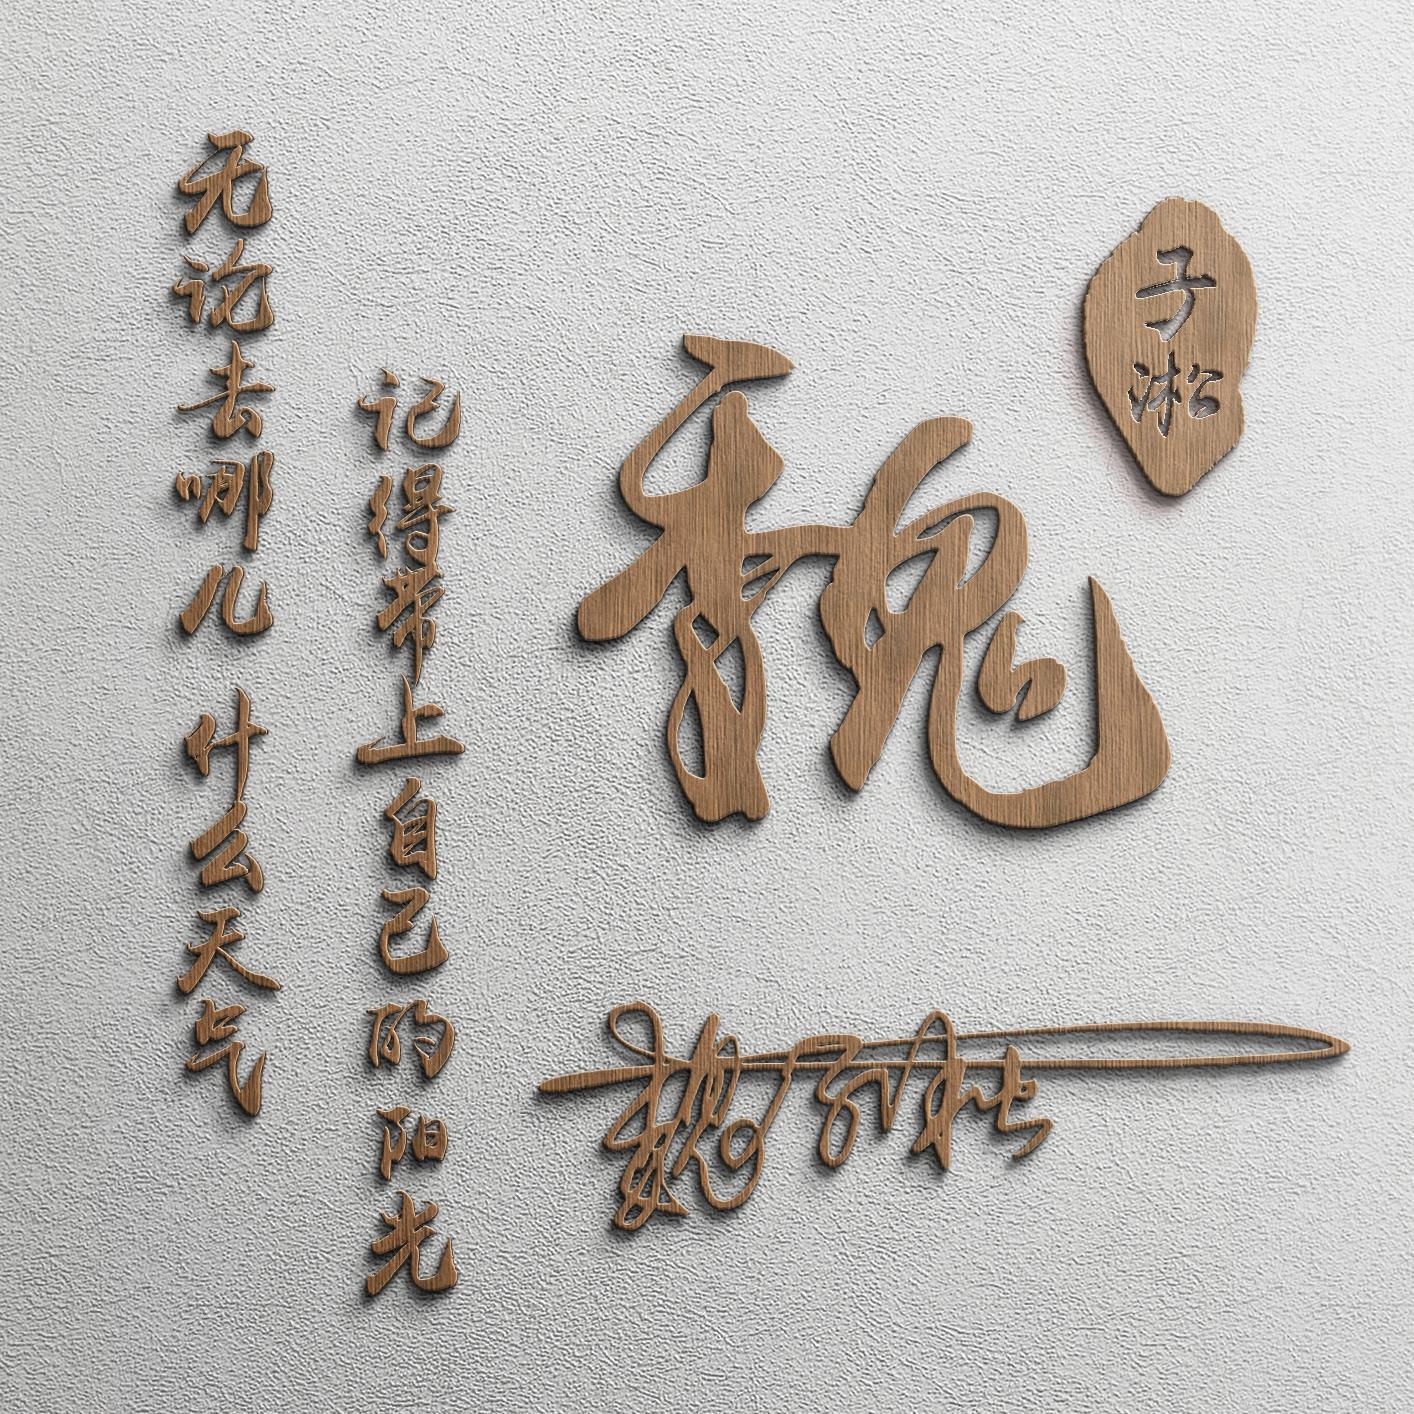 无论去哪儿 什么天气
记得带上自己的阳光
魏
子淞
魏子淞